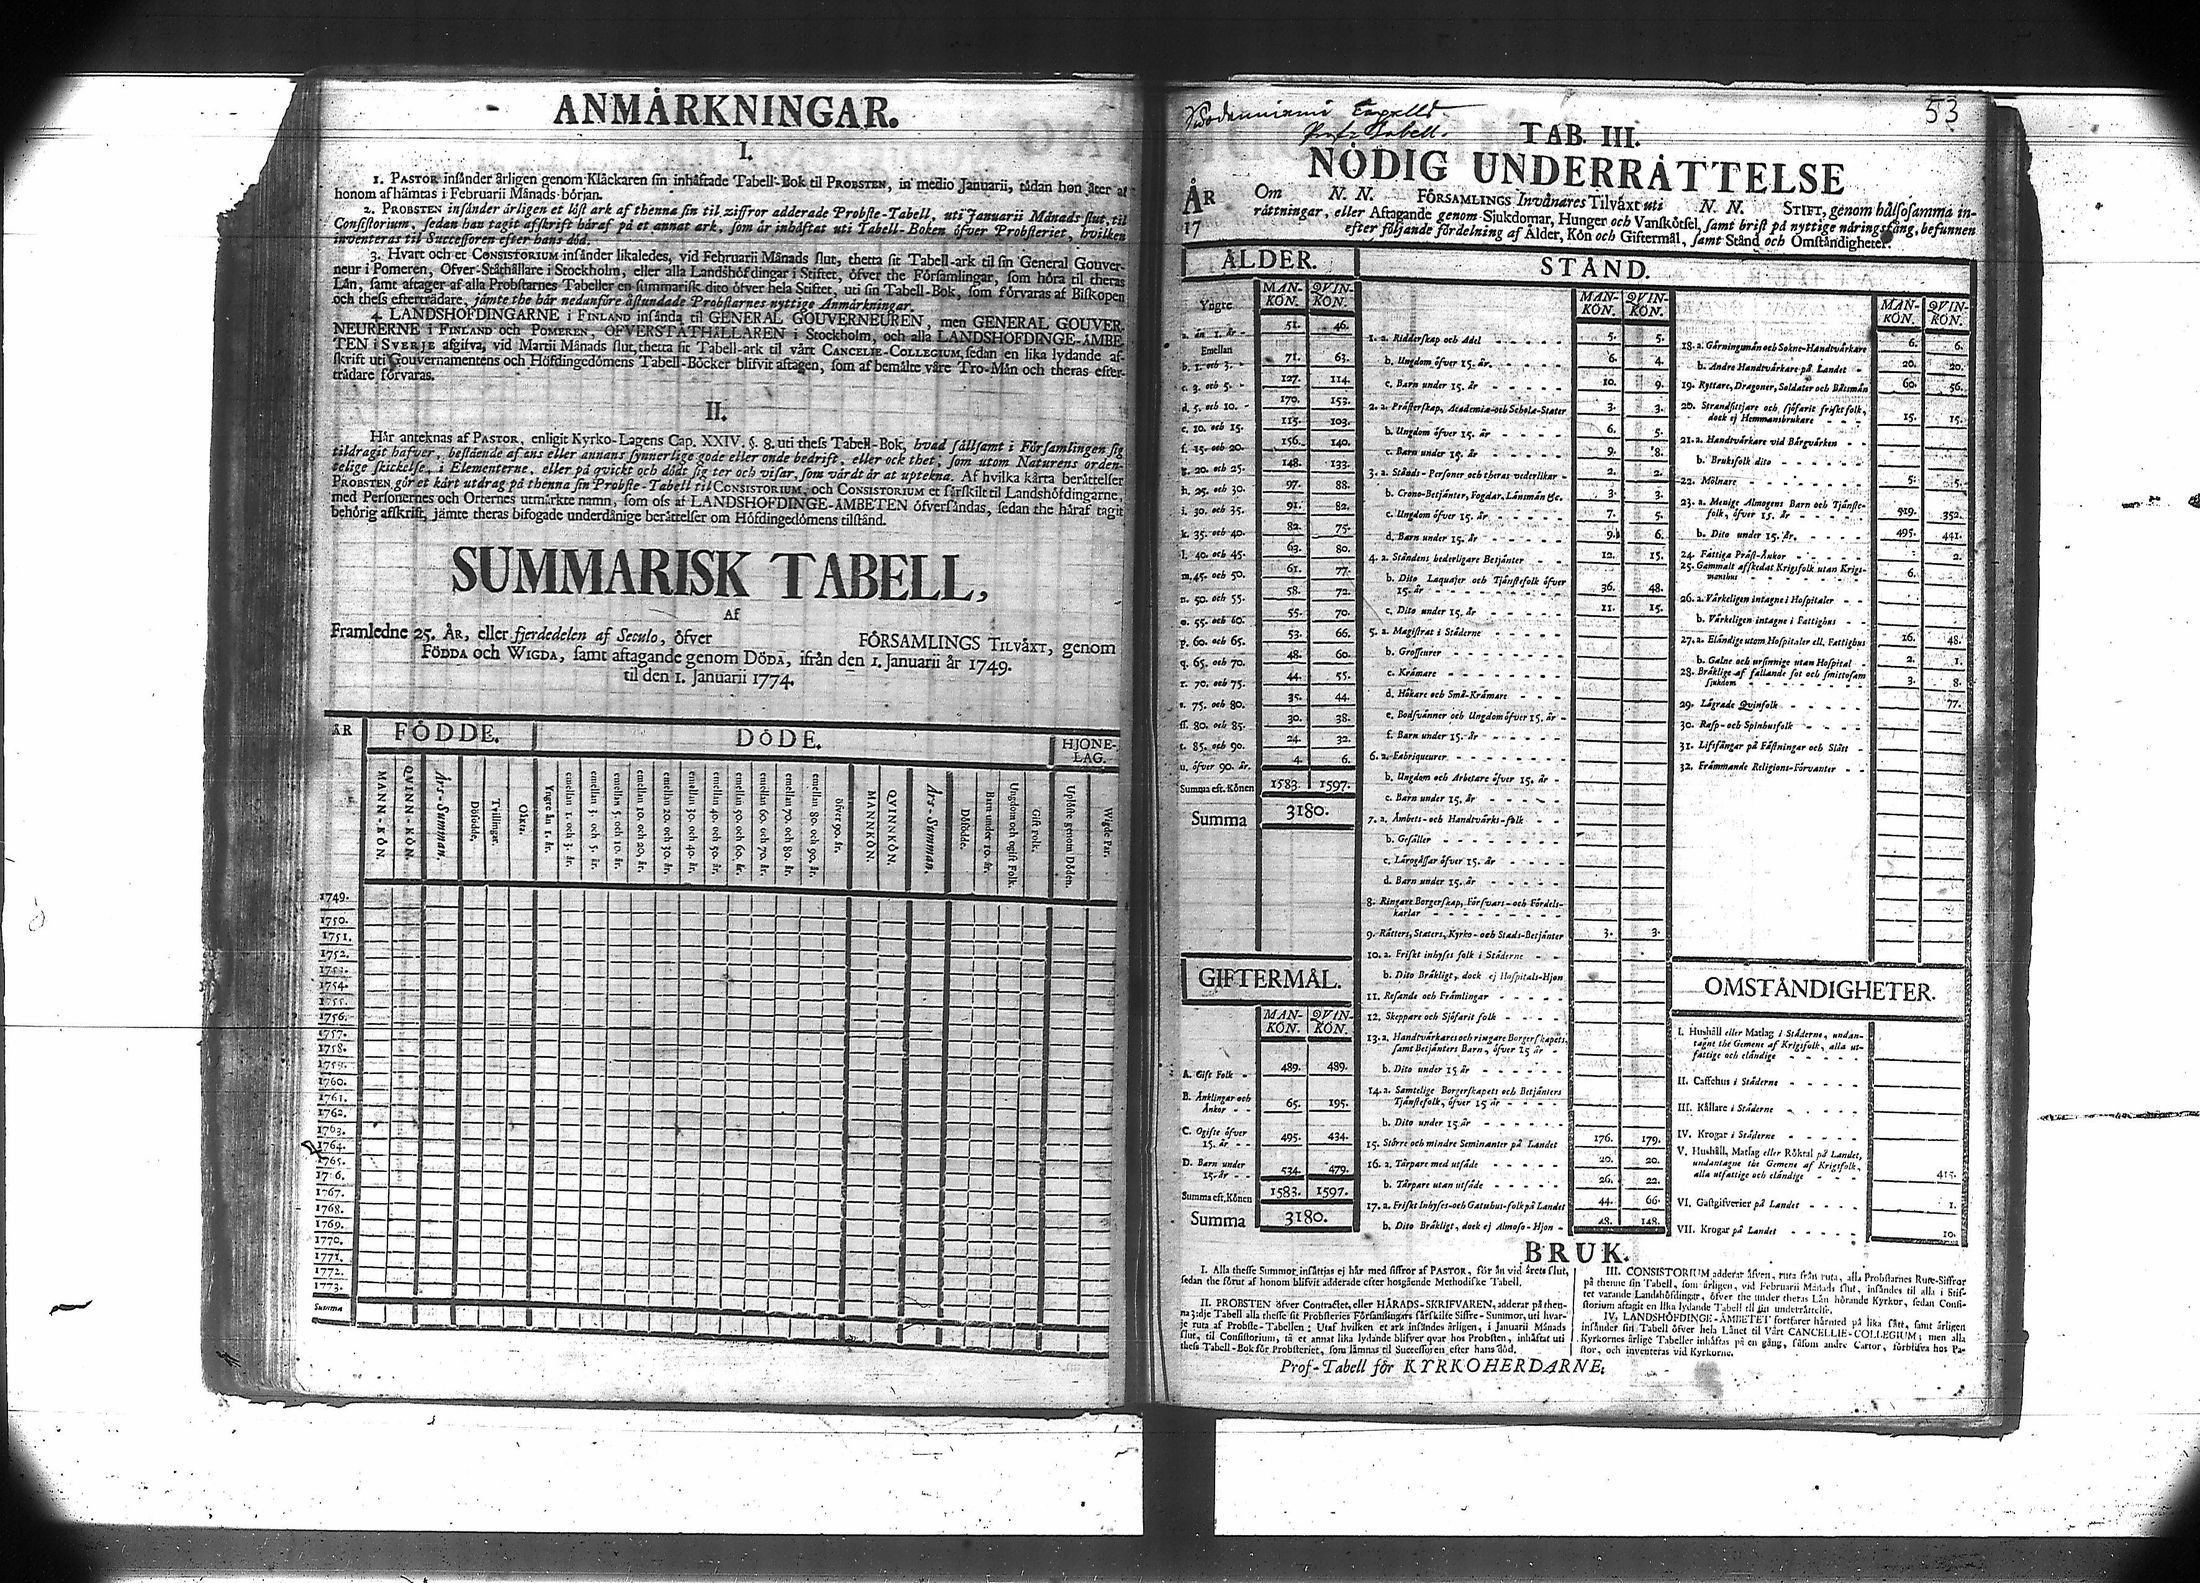 ANMÅRKNINGAR.
I.
1. PASTOR insånder årligen genom Klåckaren sin inhåftade Tabell-Bok til PROBSTEN, in medio Januarii, sådan hon åter af
honom afhåmtas i Februarii Månads-bórjan.
2. PROBSTEN insånder årligen et lóst ark af thenna sin til ziffror adderade Probste-Tabell, uti Januarii Månads slut, til
Consistorium, sedan han tagit afskrift håraf på et annat ark, som år inhåftat uti Tabell-Boken ófver Probsteriet, hvilken
inventeras til Successoren efter hans dód.
3. Hvart och et CONSISTORIUM insånder likaledes, vid Februarii Månads slut, thetta sit Tabell-ark til sin General Gouver-
neur i Pomeren, Ofver-Ståthållare i Stockholm, eller alla Landshófdingar i Stiftet, ófver the Fórsamlingar, som hóra til theras
Lån, samt aftager af alla Probstarnes Tabeller en summarisk dito ófver hela Stiftet, uti sin Tabell-Bok, som fórvaras af Biskopen
och thess eftertrådare, jåmte the hår nedanfóre åstundade Probstarnes nyttige Anmårkningar.
4. LANDSHÓFDINGARNE i FINLAND insånda til GENERAL GOUVERNEUREN, men GENERAL GOUVER-
NEURERNE i FINLAND och POMEREN, OFVERSTÅTHÅLLAREN i Stockholm, och alla LANDSHÓFDINGE-ÅMBE-
TEN i SVERJE afgifva, vid Martii Månads slut, thetta sit Tabell-ark til vårt CANCELIE-COLLEGIUM, sedan en lika lydande af-
skrift uti Gouvernamentens och Hófdingedómens Tabell-Bócker blifvit aftagen, som af bemålte våre Tro-Mån och theras efter-
trådare fórvaras.
II.
Hår anteknas af PASTOR, enligit Kyrko-Lagens Cap. XXIV. §. 8. uti thess Tabell-Bok, hvad sållsamt i Fórsamlingen sig
tildragit hafver, bestående af ens eller annans synnerlige gode eller onde bedrift, eller ock thet, som utom Naturens orden-
telige skickelse, i Elementerne, eller på qvickt och dódt sig ter och visar, som vårdt år at uptekna. Af hvilka kårta beråttelser
PROBSTEN gór et kårt utdrag på thenna sin Probste-Tabell til CONSISTORIUM, och CONSISTORIUM et sårskilt til Landshófdingarne,
med Personernes och Orternes utmårkte namn, som oss af LANDSHÓFDINGE-ÅMBETEN ófversåndas, sedan the håraf tagit
behórig afskrift, jåmte theras bifogade underdånige beråttelser om Hófdingedómens tilstånd.
SUMMARISK TABELL,
Af
Framledne 25. ÅR, eller fjerdedelen af Seculo, ófver FÓRSAMLINGS TILVÅXT, genom
FÓDDA och WIGDA, samt aftagande genom DÓDA, ifrån den 1. Januarii år 1749.
til den 1. Januarii 1774.
ÅR FÓDDE. DÓDE. HJONE-
LAG.
MANN-KÓN. QVINN-KÓN. Års-Summan. Dófódde. Tvillingar. Oåkta. Yngre ån 1. år. emellan 1. och 3. år. emellan 3. och 5. år. emellan 5. och 10. år. emellan 10. och 20. år. emellan 20. och 30. år. emellan 30. och 40. år. emellan 40. och 50. år. emellan 50. och 60. år. emellan 60. och 70. år. emellan 70. och 80. år. emellan 80. och 90. år. ófver 90. år. MANNKÓN. QVINNKÓN. Års-Summan. Dófódde. Barn under 10. år. Ungdom och ogift Folk. Gift folk. Uplóste genom Dóden. Wigde Par.
1749.
1750.
1751.
1752.
1753.
1754.
1755.
1756.
1757.
1758.
1759.
1760.
1761.
1762.
1763.
1764.
1765.
1766.
1767.
1768.
1769.
1770.
1771.
1772.
1773.
Summa
53
TAB. III.
NÓDIG UNDERRÅTTELSE
ÅR
17
Om N. N. FÓRSAMLINGS Invånares Tilvåxt uti N. N. STIFT, genom hålsosamma in-
råttningar, eller Aftagande genom Sjukdomar, Hunger och Vanskótsel, samt brist på nyttige nåringsfång, befunnen
efter fóljande fórdelning af Ålder, Kón och Giftermål, samt Stånd och Omståndigheter.
ÅLDER.
MAN-KÓN. QVIN-KÓN.
Yngre
a. ån 1. år - 51. 46.
Emellan
b. 1. och 3. - 71. 63.
c. 3. och 5. - 127. 114.
d. 5. och 10. - 170. 153.
e. 10. och 15. 115. 103.
f. 15. och 20. 156. 140.
g. 20. och 25. 148. 133.
h. 25. och 30. 97. 88.
i. 30. och 35. 91. 82.
k. 35. och 40. 82. 75.
l. 40. och 45. 63. 80.
m. 45. och 50. 61. 77.
n. 50. och 55. 58. 72.
o. 55. och 60. 55. 70.
p. 60. och 65. 53. 66.
q. 65. och 70. 48. 60.
r. 70. och 75. 44. 55.
s. 75. och 80. 35. 44.
ss. 80. och 85. 30. 38.
t. 85. och 90. 24. 32.
u. ófver 90. år. 4. 6.
Summa eft. Kónen 1583. 1597.
Summa 3180.
GIFTERMÅL.
MAN-KÓN. QVIN-KÓN.
A. Gift Folk - 489. 489.
B. Ånklingar och
Ånkor - - 65. 195.
C. Ogifte ófver
15. år - - 495. 434.
D. Barn under
15. år - - 534. 479.
Summa eft. Kónen 1583. 1597.
Summa 3180.
STÅND.
MAN-KÓN. QVIN-KÓN.
1. a. Ridderskap och Adel 5. 5.
b. Ungdom ófver 15. år - 6. 4.
c. Barn under 15. år 10. 9.
2. a. Pråsterskap, Academiæ-och Scholæ-Stater 3. 3.
b. Ungdom ófver 15. år 6. 5.
c. Barn under 15. år 9. 8.
3. a. Stånds-Personer och theras vederlikar - 2. 2.
b. Crono-Betjånter, Fogdar, Långsmån &c. 3. 3.
c. Ungdom ófver 15. år 7. 5.
d. Barn under 15. år 9. 6.
4. a. Ståndens hederligare Betjånter 12. 15.
b. Dito Laquajer och Tjånstefolk ófver
15. år 36. 48.
c. Dito under 15. år 11. 15.
5. a. Magistrat i Ståderne
b. Grosseurer
c. Kråmare
d. Hókare och Små-Kråmare
e. Bodsvånner och Ungdom ófver 15. år -
f. Barn under 15. år
6. a. Fabriqueurer
b. Ungdom och Arbetare ófver 15. år -
c. Barn under 15. år
7. a. Åmbets- och Handtvårks-folk
b. Gesåller
c. Lårogåssar ófver 15. år
d. Barn under 15. år
8. Ringare Borgerskap, Fórsvars- och Fórdels-
karlar
9. Råtters, Staters, Kyrko- och Stads-Betjånter 3. 3.
10. a. Friskt inhyses folk i Ståderne
b. Dito Bråkligt, dock ej Hospitals-Hjon
11. Resande och Fråmlingar
12. Skeppare och Sjófarit folk
13. a. Handtvårkares och ringare Borgerskapets,
samt Betjånters Barn, ófver 15 år
b. Dito under 15 år
14. a. Samtelige Borgerskapets och Betjånters
Tjånstefolk, ófver 15 år
b. Dito under 15 år
15. Stórre och mindre Seminanter på Landet 176. 179.
16. a. Tårpare med utsåde 20. 20.
b. Tårpare utan utsåde 26. 22.
17. a. Friskt Inhyses-och Gatuhus-folk på Landet 44. 66.
b. Dito Bråkligt, dock ej Almoso-Hjon - 48. 148.
MAN-KÓN. QVIN-KÓN.
18. a. Gårningsmån och Sokne-Handtvårkare 6. 6.
b. Andre Handtvårkare på Landet - 20. 20.
19. Ryttare, Dragoner, Soldater och Båtsmån 60. 56.
20. Strandsittjare och sjófarit friskt folk,
dock ej Hemmansbrukare 15. 15.
21. a. Handtvårkare vid Bårgvårken
b. Bruksfolk dito
22. Mólnare 5. 5.
23. a. Menige Almogens Barn och Tjånste-
folk, ófver 15. år 519. 352.
b. Dito under 15. år. 495. 441.
24. Fattiga Pråst-Ånkor 2.
25. Gammalt afskedat Krigsfolk utan Krigs-
manshus 6.
26. a. Vårkeligen intagne i Hospitaler
b. Vårkeligen intagne i Fattighus
27. a. Elåndige utom Hospitaler ell. Fattighus 16. 48.
b. Galne och ursinnige utan Hospital 2. 1.
28. Bråklige af fallande sot och smittosam
sjukdom 3. 8.
29. Lågrade Qvinfolk 77.
30. Rasp- och Spinhusfolk
31. Lifsfångar på Fåstningar och Slått
32. Fråmmande Religions-Fórvanter
OMSTÅNDIGHETER.
I. Hushåll eller Matlag i Ståderne, undan-
tagne the Gemene af Krigsfolk, alla ut-
fattige och elåndige
II. Caffehus i Ståderne
III. Kållare i Ståderne
IV. Krogar i Ståderne
V. Hushåll, Matlag eller Róktal på Landet,
undantagne the Gemene af Krigsfolk,
alla utfattige och elåndige
VI. Gåstgifverier på Landet 1.
VII. Krogar på Landet 10.
BRUK.
I. Alla thesse Summor insåttjas ej hår med siffror af PASTOR, fór ån vid årets slut,
sedan the fórut af honom blifvit adderade efter hosgående Methodiske Tabell.
II. PROBSTEN ófver Contractet, eller HÅRADS-SKRIFVAREN, adderar på then-
na 3:dje Tabell alla thesse sit Probsteries Fórsamlingars sårskilte Siffre-Summor, uti hvar-
je ruta af Probste-Tabellen; Utaf hvilken et ark insåndes årligen, i Januarii Månads
slut, til Consistorium, tå et annat lika lydande blifver qvar hos Probsten, inhåftat uti
thess Tabell-Bok fór Probsteriet, som låmnas til Successoren efter hans dód.
III. CONSISTORIUM adderar åfven, ruta från ruta, alla Probstarnes Rute-Siffror
på thenne sin Tabell, som årligen, vid Februarii Månads slut, insåndes til alla i Stif-
tet varande Landshófdingar, ófver the under theras Lån hórande Kyrkor, sedan Consi-
storium aftagit en lika lydande Tabell til sin underråttelse.
IV. LANDSHÓFDINGE-ÅMBETET fortfarer hårmed på lika sått, samt årligen
insånder sin Tabell ófver hela Lånet til Vårt CANCELLIE-COLLEGIUM; men alla
Kyrkornes årlige Tabeller inhåftas på en gång, såsom andre Cartor, fórblifva hos Pa-
stor, och inventeras vid Kyrkorne.
Prof-Tabell fór KYRKOHERDARNE;